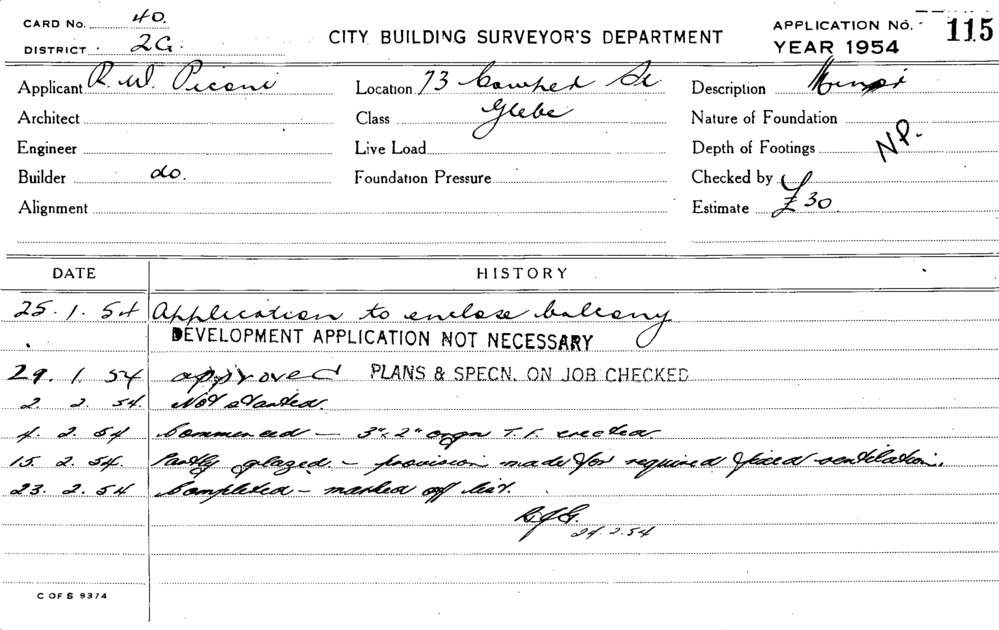 CARD NO. 40.
DISTRICT 2G.
CITY BUILDING SURVEYOR'S DEPARTMENT
APPLICATION NO. 115
YEAR 1954
Applicant R. W. Piconi Location 73 Cowper St Description Minor
Architect Class Glebe Nature of Foundation
Engineer Live Load Depth of Footings NP.
Builder do. Foundation Pressure Checked by
Alignment Estimate £30
DATE HISTORY
25.1.54 Application to enclose balcony
DEVELOPMENT APPLICATION NOT NECESSARY
29.1.54 approved PLANS & SPECN. ON JOB CHECKED
2.2.54. Not started.
4.2.54 Commenced – 3"x2" T.F. erected.
15.2.54. Partly glazed. – provision made for required fixed ventilation.
23.2.54 Completed – marked off list.
24.2.54
C OF S 9374